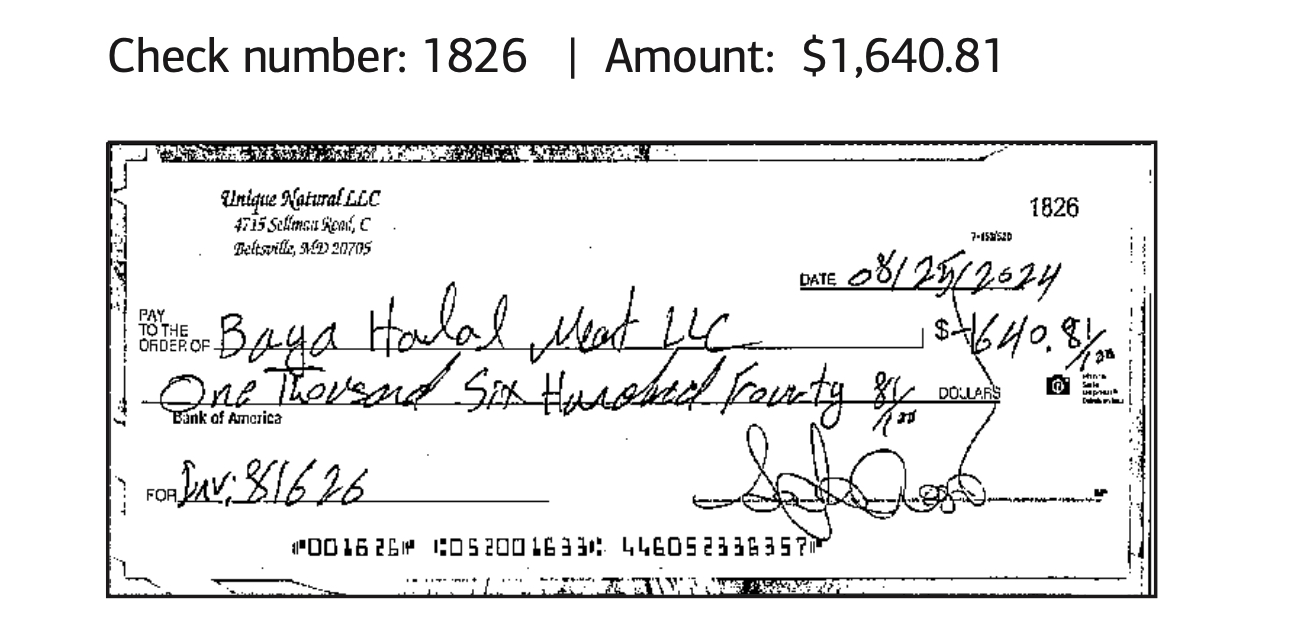 Check number: 1826 | Amount: $1,640.81
Unique Natural LLC
1826
4715 Sellman Road, C
Beltsville, MD 20705
DATE 08/25/2024
PAY TO THE ORDER OF Baya Halal Meat LLC $ 1640.81/100
One Thousand Six Hundred Fourty 81/100 DOLLARS
Bank of America
FOR Inv: 81626